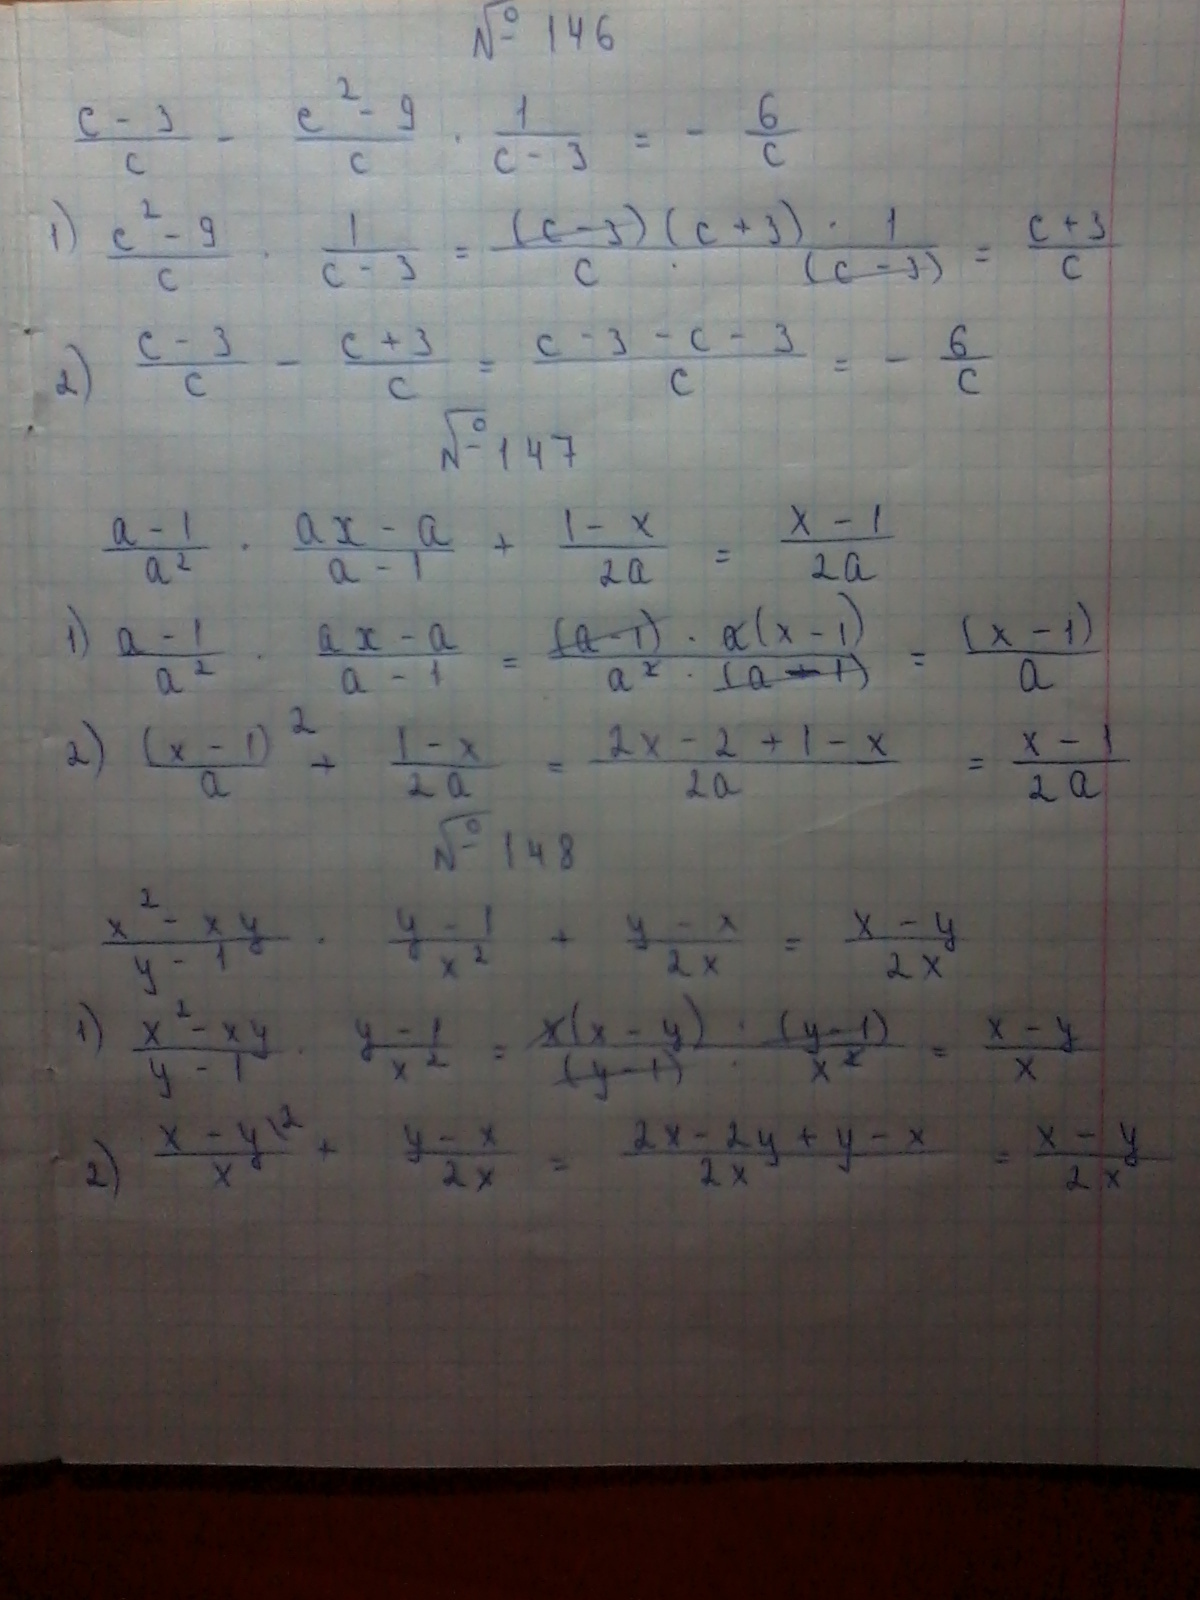 № 146
(c - 3)/c - (c² - 9)/c · 1/(c - 3) = - 6/c
1) (c² - 9)/c · 1/(c - 3) = ((c - 3)(c + 3) · 1)/(c · (c - 3)) = (c + 3)/c
2) (c - 3)/c - (c + 3)/c = (c - 3 - c - 3)/c = - 6/c
№ 147
(a - 1)/a² · (ax - a)/(a - 1) + (1 - x)/2a = (x - 1)/2a
1) (a - 1)/a² · (ax - a)/(a - 1) = ((a - 1) · a(x - 1))/(a² · (a - 1)) = (x - 1)/a
2) (x - 1)/a ² + (1 - x)/2a = (2x - 2 + 1 - x)/2a = (x - 1)/2a
№ 148
(x² - xy)/(y - 1) · (y - 1)/x² + (y - x)/2x = (x - y)/2x
1) (x² - xy)/(y - 1) · (y - 1)/x² = (x(x - y) · (y - 1))/((y - 1) · x²) = (x - y)/x
2) (x - y)/x \2 + (y - x)/2x = (2x - 2y + y - x)/2x = (x - y)/2x